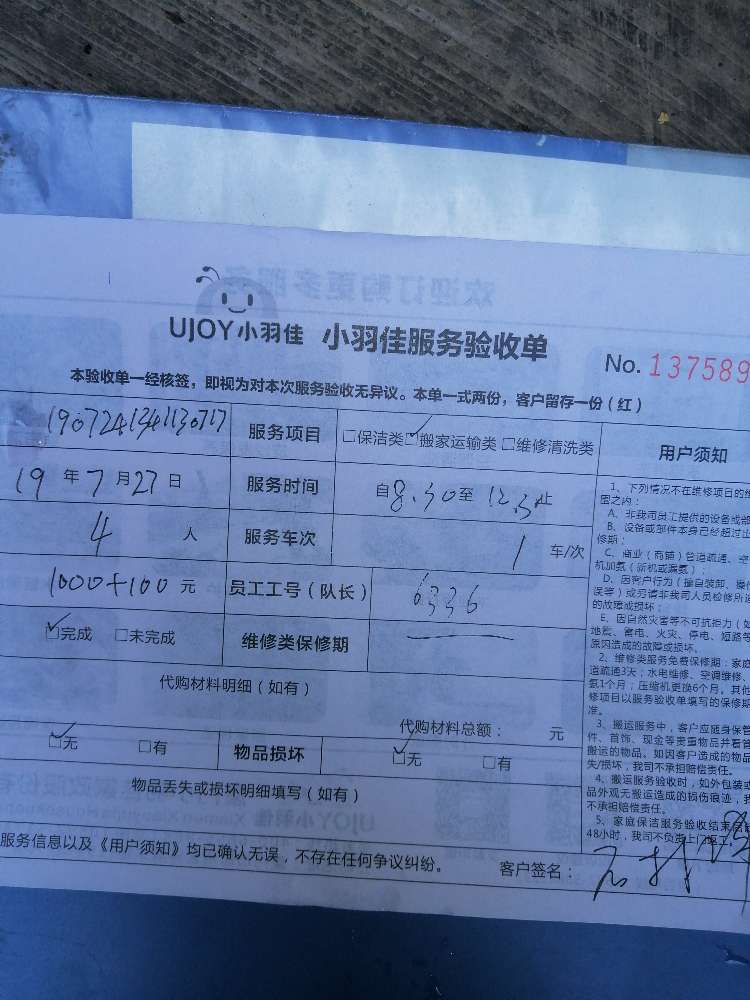 UJOY小羽佳 小羽佳服务验收单
No. 137589
本验收单一经核签，即视为对本次服务验收无异议。本单一式两份，客户留存一份（红）
190724134130717 服务项目 □保洁类 ☑搬家运输类 □维修清洗类
19 年 7 月 27 日 服务时间 自 8.30 至 12.3 止
4 人 服务车次 1 车/次
1000+100 元 员工工号（队长） 6336
☑完成 □未完成 维修类保修期
代购材料明细（如有）
代购材料总额： 元
☑无 □有 物品损坏 ☑无 □有
物品丢失或损坏明细填写（如有）
服务信息以及《用户须知》均已确认无误，不存在任何争议纠纷。
客户签名：
用户须知
1、下列情况不在维修项目的维
围之内：
A、非我司员工提供的设备或部
B、设备或部件本身已经超过出
修期；
C、商业（商铺）管道疏通、空
机加氨（新机或漏氨）；
D、因客户行为（擅自装卸、操
误等）或另请非我司人员检修所
的故障或损坏；
E、因自然灾害等不可抗拒力（如
地震、雷电、火灾、停电、短路等
原因造成的故障或损坏。
2、维修类服务免费保修期：家庭
道疏通3天；水电维修、空调维修、
氨1个月；压缩机更换6个月。其他
修项目以服务验收单填写的保修期
准。
3、搬运服务中，客户应随身保管
件、首饰、现金等贵重物品并看管
搬运的物品。如因客户造成的物品
失/损坏，我司不承担赔偿责任。
4、搬运服务验收时，如外包装或
品外观无搬运造成的损伤痕迹，我
不承担赔偿责任。
5、家庭保洁服务验收结束后
48小时，我司不负责上门返工。